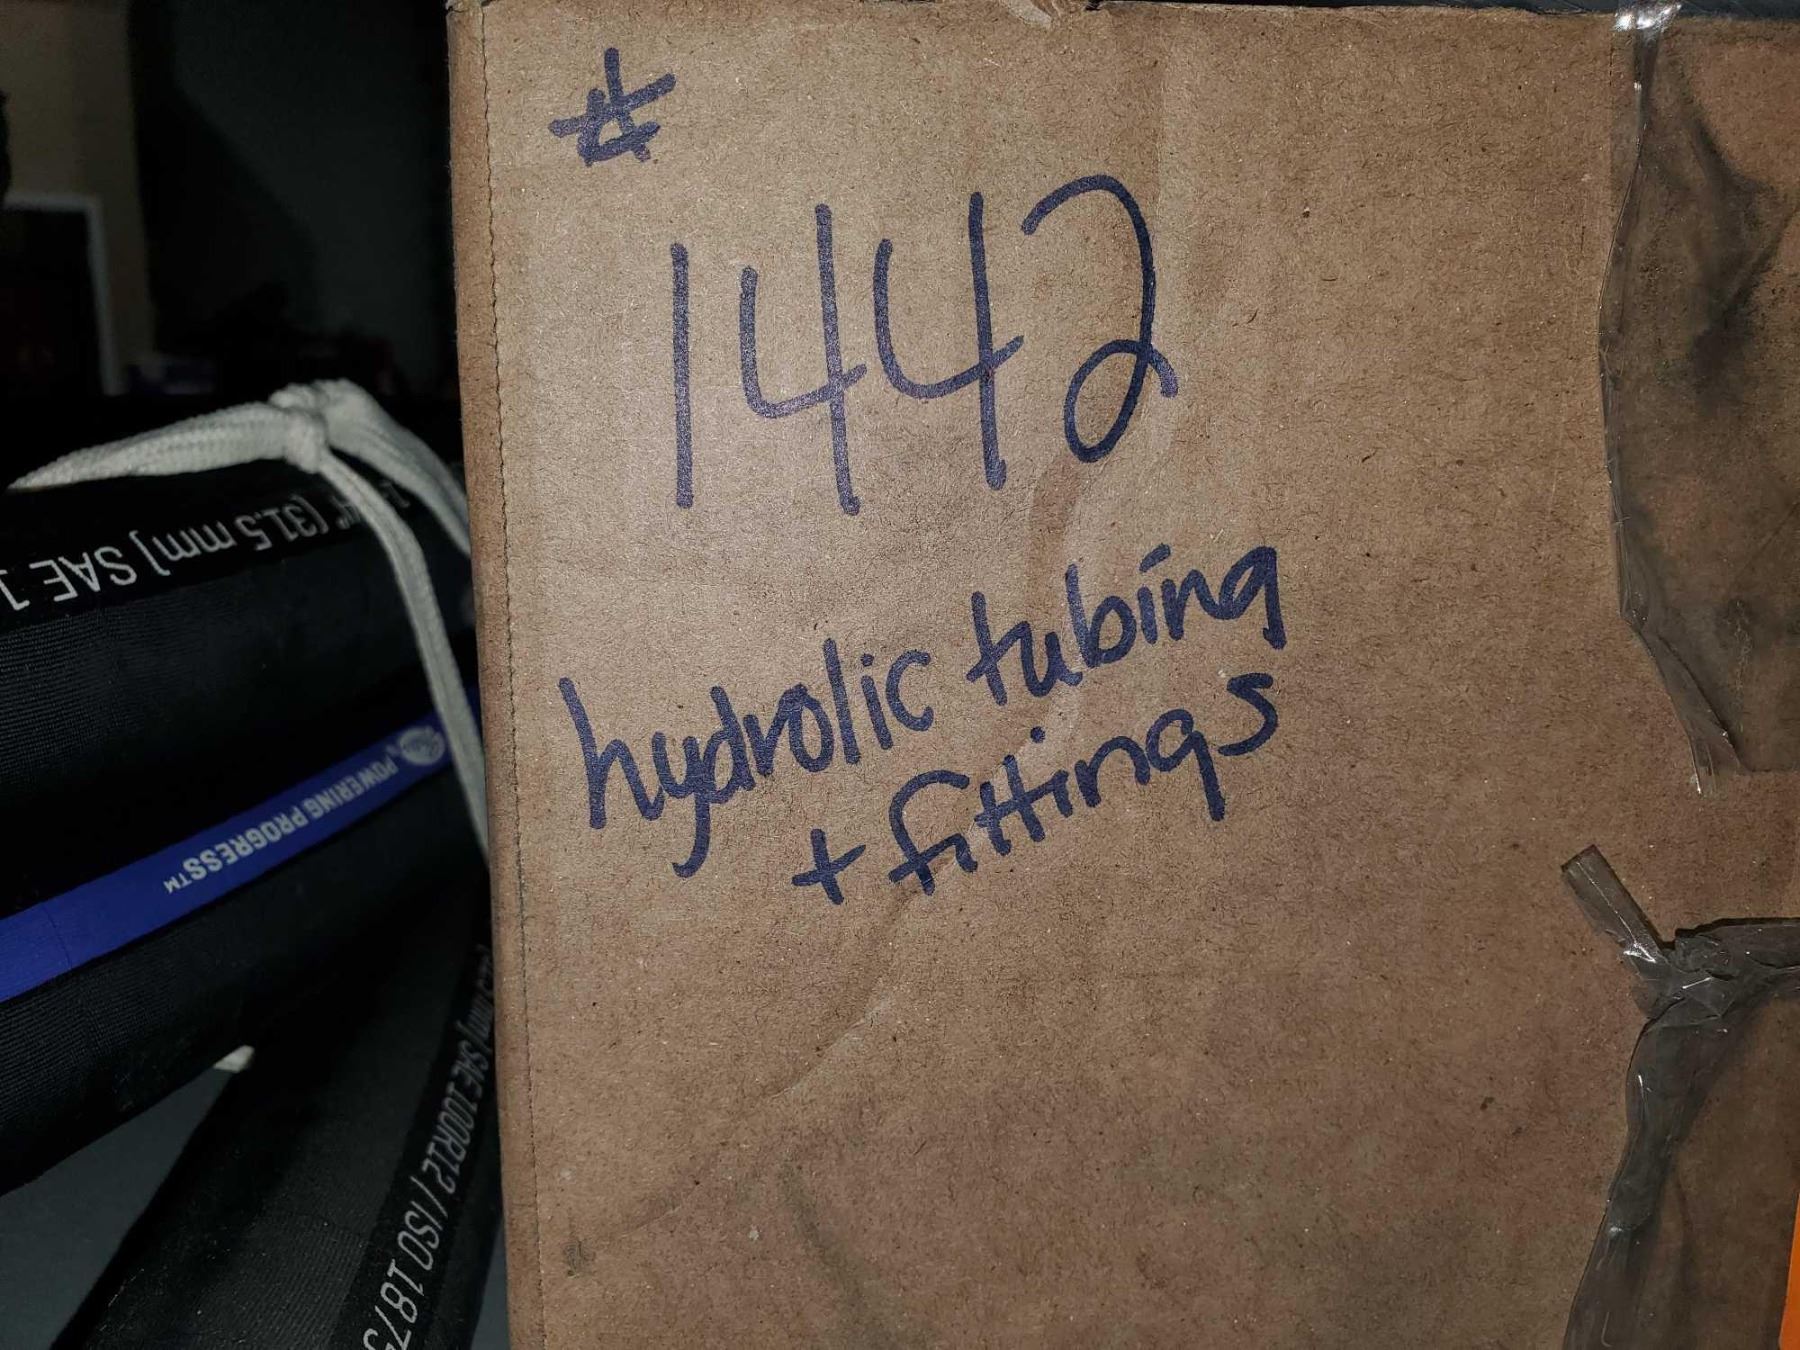 #
1442
hydrolic tubing
+ fittings
(31.5 mm) SAE 1
POWERING PROGRESS™
mm) SAE 100R12 / ISO 1875